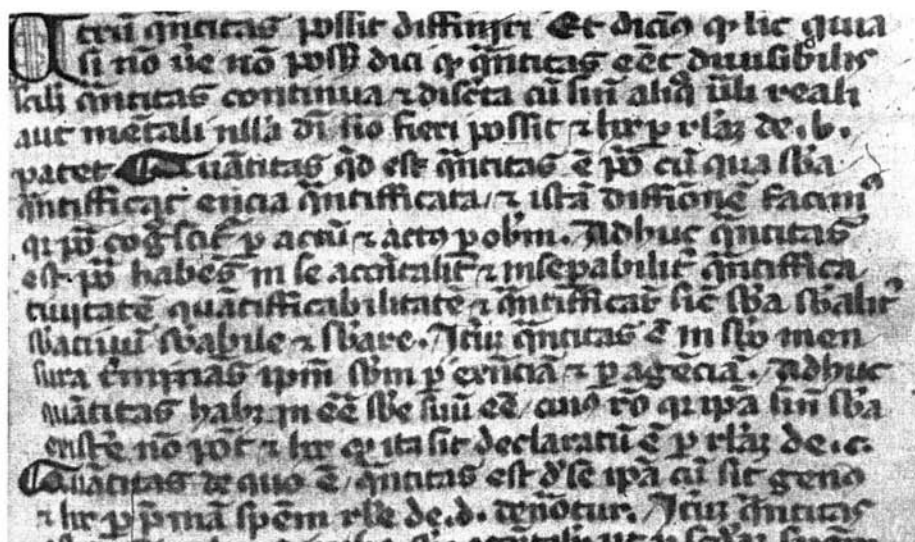 Utrū q̄ntitas possit diffiniri Et dicim⁹ qͥ sic quia
si nō ūe nō possꝫ dici qͥ q̄ntitas eēt diuisibilis
scili q̄ntitas continua ⁊ discͭta cū sin̄ aliq̄ ūli reali
aut mētali nll'a dī sio fieri possit ⁊ hͦ p rl'aꝫ de .b.
patet Quātitas qͥd est q̄ntitas ē pͦ cū qua sb'a
q̄ntifficat encia q̄ntifficata / ⁊ istā diffiōnē facim⁹
qꝛ pͦ coḡscit̄ p actū ⁊ act⁹ p obm̄. Adhuc q̄ntitas
est pͦ habēs in se accn̄talit̄ ⁊ insepabilit̄ q̄ntiffica
tiuitatē quātifficabilitatē ⁊ q̄ntifficar̄ sic̄ sb'a sb'alit̄
sb'atiuū sb'abile ⁊ sb'are. Itē q̄ntitas ē in sb'o men
sura t̄minās ipm̄ sbm̄ p exn̄ciā ⁊ p agēciā. Adhuc
quātitas habꝫ in eē sb'e suū eē / cui⁹ rō qꝛ ipā sin̄ sb'a
existe nō pōt ⁊ hͦ qͥ ita sit declaratū ē p rl'aꝫ de .c.
Quātitas de quo ē / q̄ntitas est d' se ipā cū sit gen⁹
⁊ hͦ p p̄mā spēm rl'e de .d. denotur. Itē q̄ntitas